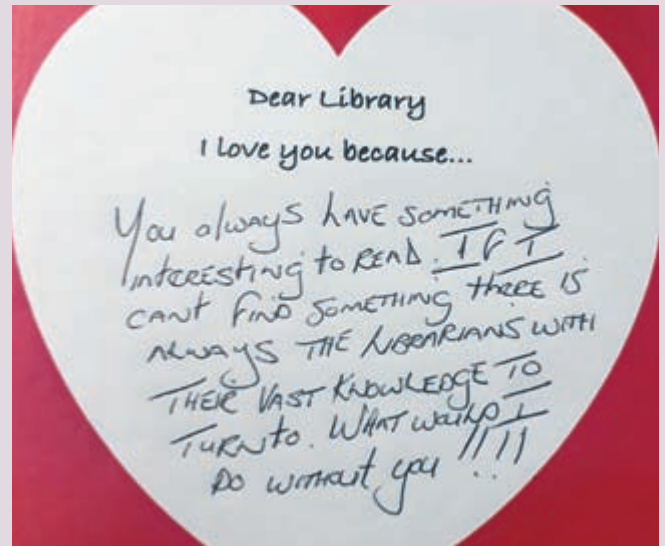 Dear Library
I love you because...
You always HAVE SOMETHING
INTERESTING to READ. IF I
CANT FIND SOMETHING tHERE IS
ALWAYS THE LIBRARIANS WITH
THEIR VAST KNOWLEDGE TO
TURN to. WHAT WOULD I
DO WITHOUT you !!!!